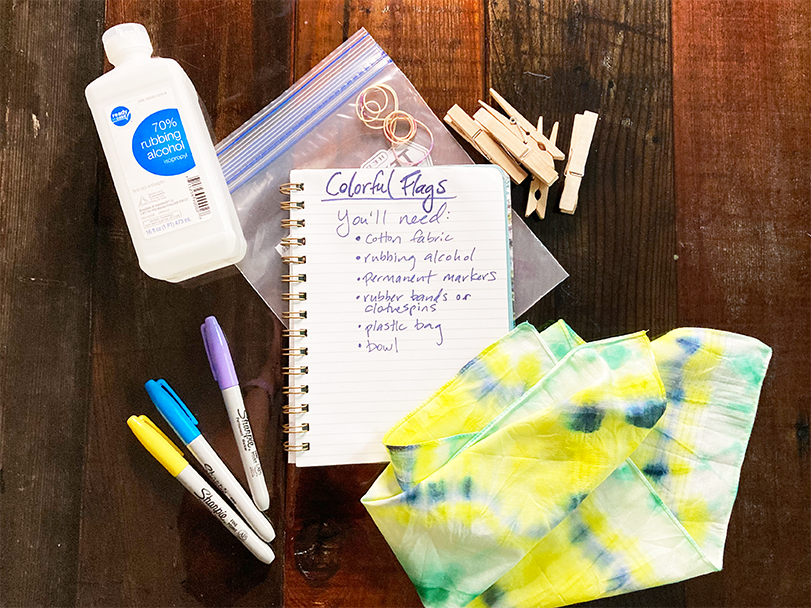 ready
in case
70%
rubbing
alcohol
isopropyl
16 fl oz (1 PT) 473 mL
Colorful Flags
You'll need:
• cotton fabric
• rubbing alcohol
• permanent markers
• rubber bands or
clothespins
• plastic bag
• bowl
Sharpie
Sharpie
Sharpie